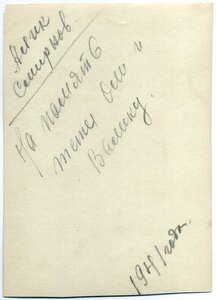 Алик
Смирнов.
На память
тете Оли и
Валику.
1941 года.